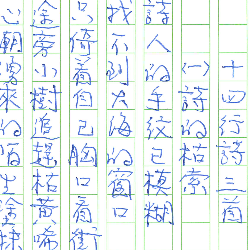 十四行詩三首
(一)詩的枯索
詩人的手紋已模糊
找不到大海的窗口
只倚着自己胸口看街
途旁小樹追趕枯黃嘶
心朝湧來的陌生塗抹